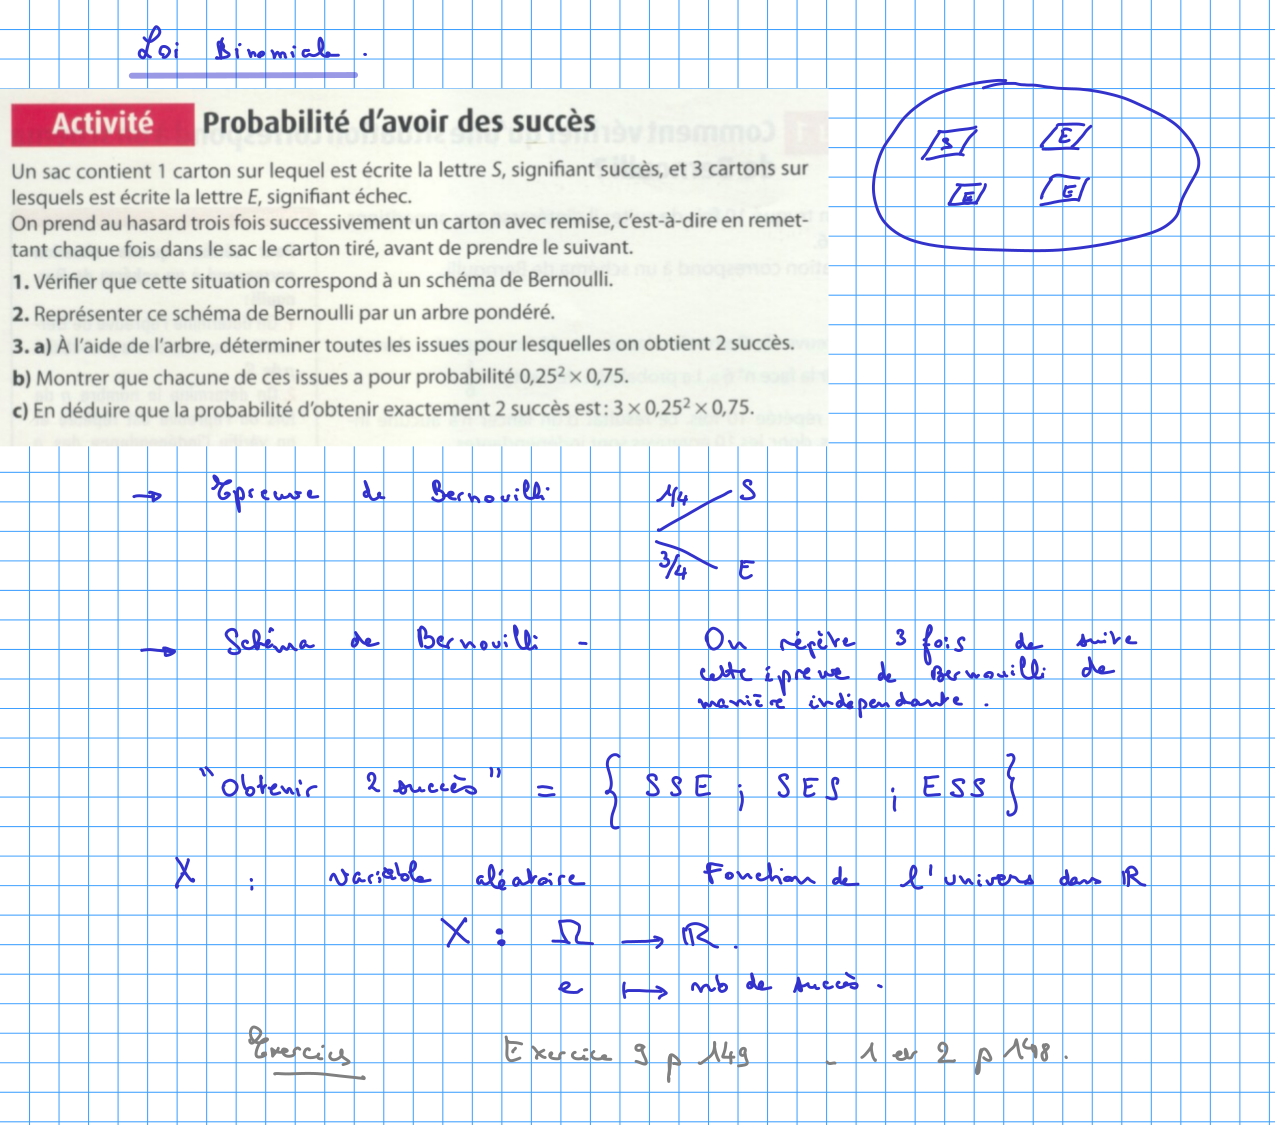 Loi Binomiale.
Activité Probabilité d'avoir des succès
Un sac contient 1 carton sur lequel est écrite la lettre S, signifiant succès, et 3 cartons sur
lesquels est écrite la lettre E, signifiant échec.
On prend au hasard trois fois successivement un carton avec remise, c'est-à-dire en remet-
tant chaque fois dans le sac le carton tiré, avant de prendre le suivant.
1. Vérifier que cette situation correspond à un schéma de Bernoulli.
2. Représenter ce schéma de Bernoulli par un arbre pondéré.
3. a) À l'aide de l'arbre, déterminer toutes les issues pour lesquelles on obtient 2 succès.
b) Montrer que chacune de ces issues a pour probabilité 0,25² × 0,75.
c) En déduire que la probabilité d'obtenir exactement 2 succès est : 3 × 0,25² × 0,75.
S E
E E
→ Epreuve de Bernouilli 1/4 S
3/4 E
→ Schéma de Bernouilli - On répète 3 fois de suite
cette épreuve de Bernouilli de
manière indépendante.
"Obtenir 2 succès" = { SSE ; SES ; ESS }
X : variable aléatoire Fonction de l'univers dans ℝ
X : Ω → ℝ.
e ↦ nb de succès.
Exercices Exercice 9 p 149 - 1 et 2 p 148.